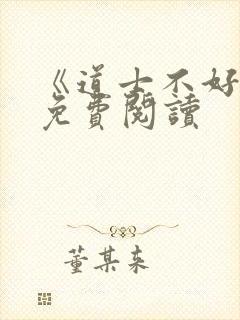 《道士不好
免費閱讀
董某来